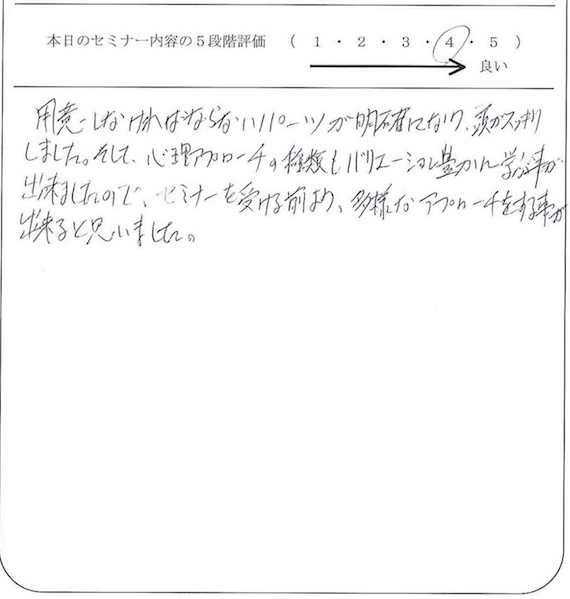 本日のセミナー内容の5段階評価 ( 1 ・ 2 ・ 3 ・ 4 ・ 5 )
良い
用意しなければならないパーツが明確になり、頭がスッキリ
しました。そして、心理アプローチの種類もバリエーション豊かに学ぶ事が
出来ましたので、セミナーを受ける前より、多様なアプローチをする事が
出来ると思いました。